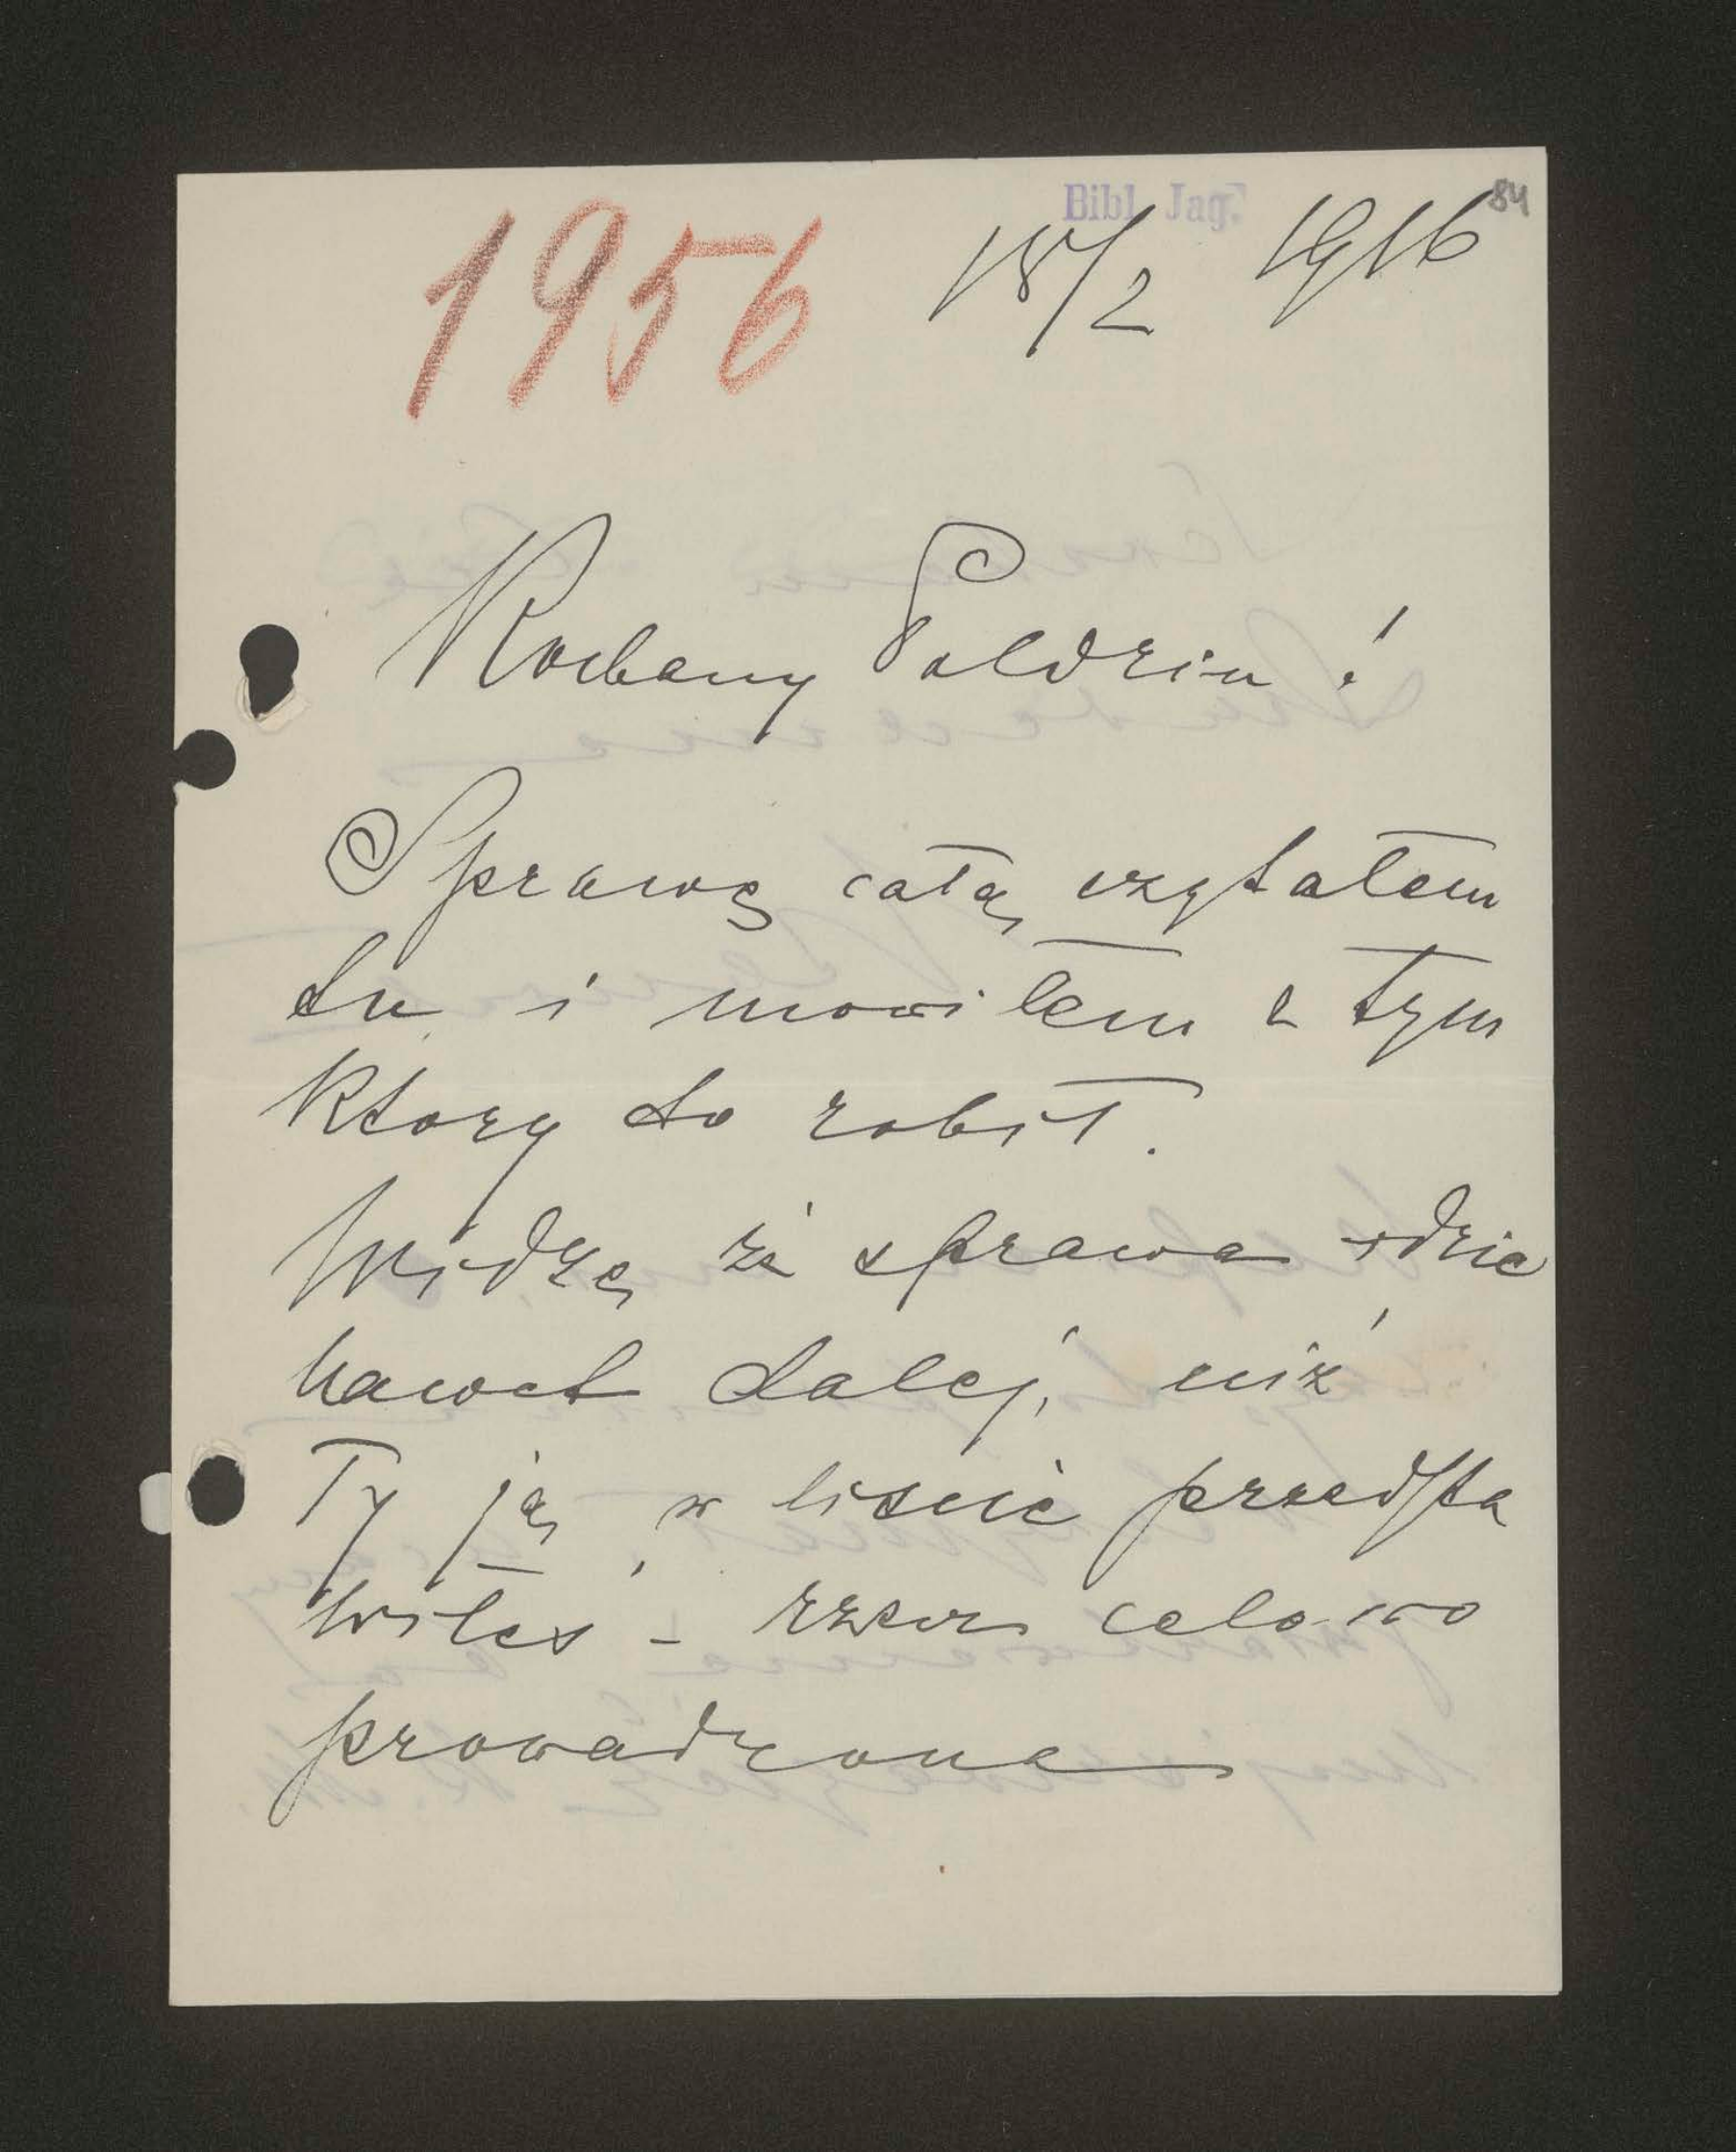 Bibl. Jag. 84
1956 18/2 1916
Kochany Poldziu!
Sprawę całą czytałem
tu i mowiłem z tym
ktory to robił.
Widzę że sprawa idzie
nawet dalej, niż
Ty ją w liscie przedsta
wiłeś - rzecz celowo
prowadzona